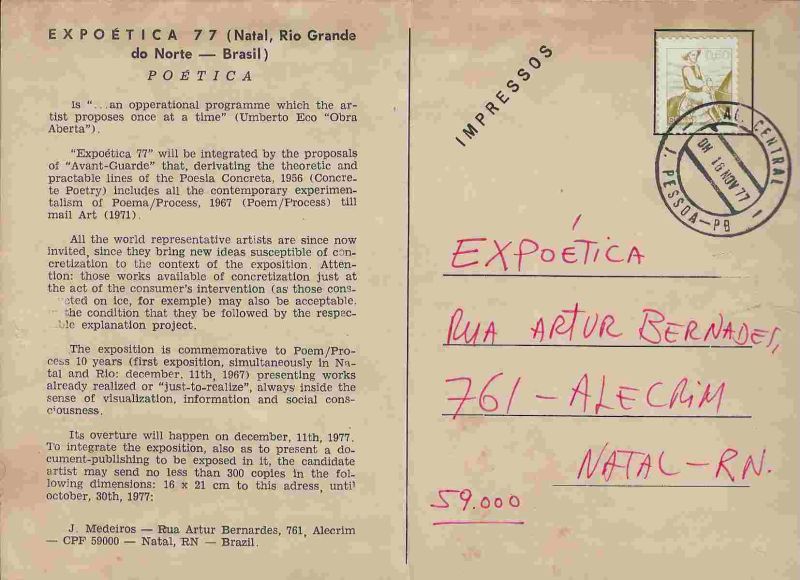 EXPOÉTICA 77 (Natal, Rio Grande
do Norte — Brasil)
POÉTICA
is "...an opperational programme which the ar-
tist proposes once at a time" (Umberto Eco "Obra
Aberta").
"Expoética 77" will be integrated by the proposals
of "Avant-Guarde" that, derivating the theoretic and
practable lines of the Poesia Concreta, 1956 (Concre-
te Poetry) includes all the contemporary experimen-
talism of Poema/Process, 1967 (Poem/Process) till
mail Art (1971).
All the world representative artists are since now
invited, since they bring new ideas susceptible of con-
cretization to the context of the exposition. Atten-
tion: those works available of concretization just at
the act of the consumer's intervention (as those cons-
cted on ice, for exemple) may also be acceptable.
the condition that they be followed by the respec-
ble explanation project.
The exposition is commemorative to Poem/Pro-
cess 10 years (first exposition, simultaneously in Na-
tal and Rio: december, 11th, 1967) presenting works
already realized or "just-to-realize", always inside the
sense of visualization, information and social cons-
ciousness.
Its overture will happen on december, 11th, 1977.
To integrate the exposition, also as to present a do-
cument-publishing to be exposed in it, the candidate
artist may send no less than 300 copies in the fol-
lowing dimensions: 16 x 21 cm to this adress, until
october, 30th, 1977:
J. Medeiros — Rua Artur Bernardes, 761, Alecrim
— CPF 59000 — Natal, RN — Brazil.
IMPRESSOS
0,60
AG. CENTRAL
DH 16 NOV 77
J. PESSOA—PB
EXPOÉTICA
RUA ARTUR BERNADES,
761 - ALECRIM
NATAL - RN.
59.000